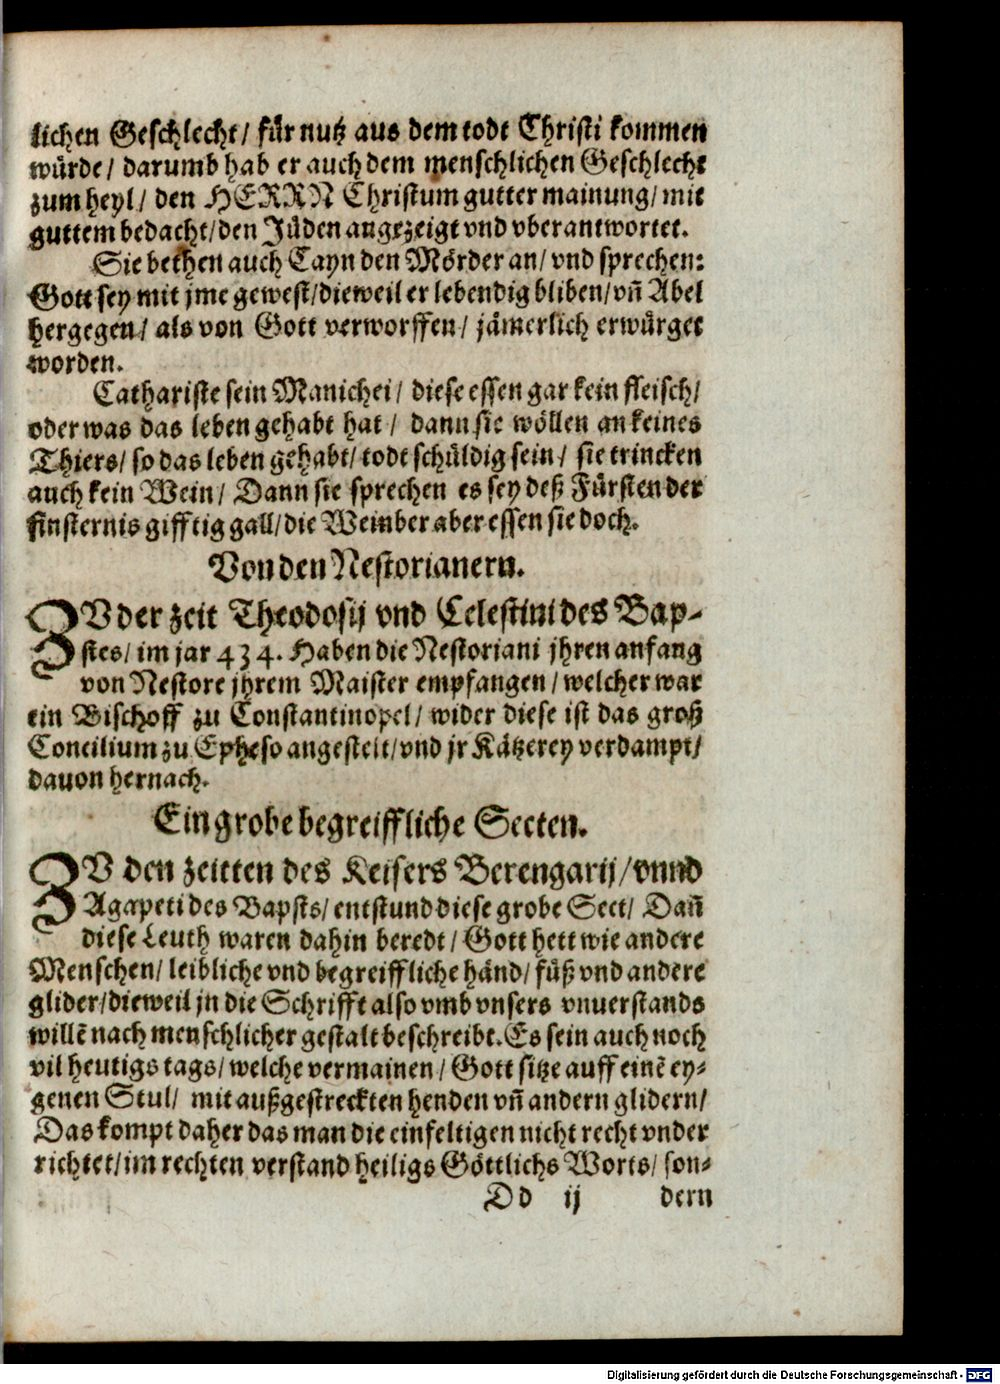 lichen Geschlecht/ für nutz aus dem todt Christi kommen
würde/ darumb hab er auch dem menschlichen Geschlecht
zum heyl/ den HERRN Christum gutter mainung/ mit
guttem bedacht/ den Jüden angezeigt vnd vberantwortet.
Sie bethen auch Cayn den Mörder an/ vnd sprechen:
Gott sey mit jme gewest/ dieweil er lebendig bliben/ vñ Abel
hergegen/ als von Gott verworffen/ jämerlich erwürget
worden.
Cathariste sein Manichei/ diese essen gar kein fleisch/
oder was das leben gehabt hat/ dann sie wöllen an keines
Thiers/ so das leben gehabt/ todt schüldig sein/ sie trincken
auch kein Wein/ Dann sie sprechen es sey deß Fürsten der
finsternis gifftig gall/ die Weinber aber essen sie doch.
Von den Nestorianern.
ZV der zeit Theodosij vnd Celestini des Bap-
stes/ im jar 434. Haben die Nestoriani jhren anfang
von Nestore jhrem Maister empfangen/ welcher war
ein Bischoff zu Constantinopel/ wider diese ist das groß
Concilium zu Epheso angestelt/ vnd jr Kätzerey verdampt/
dauon hernach.
Ein grobe begreiffliche Secten.
ZV den zeitten des Keisers Berengarij/ vnnd
Agapeti des Bapsts/ entstund diese grobe Sect/ Dañ
diese Leuth waren dahin beredt/ Gott hett wie andere
Menschen/ leibliche vnd begreiffliche händ/ füß vnd andere
glider/ dieweil jn die Schrifft also vmb vnsers vnuerstands
willē nach menschlicher gestalt beschreibt. Es sein auch noch
vil heutigs tags/ welche vermainen/ Gott sitze auff einē ey-
genen Stul/ mit außgestreckten henden vñ andern glidern/
Das kompt daher das man die einfeltigen nicht recht vnder
richtet/ im rechten verstand heiligs Göttlichs Worts/ son-
Dd ij dern
Digitalisierung gefördert durch die Deutsche Forschungsgemeinschaft - DFG